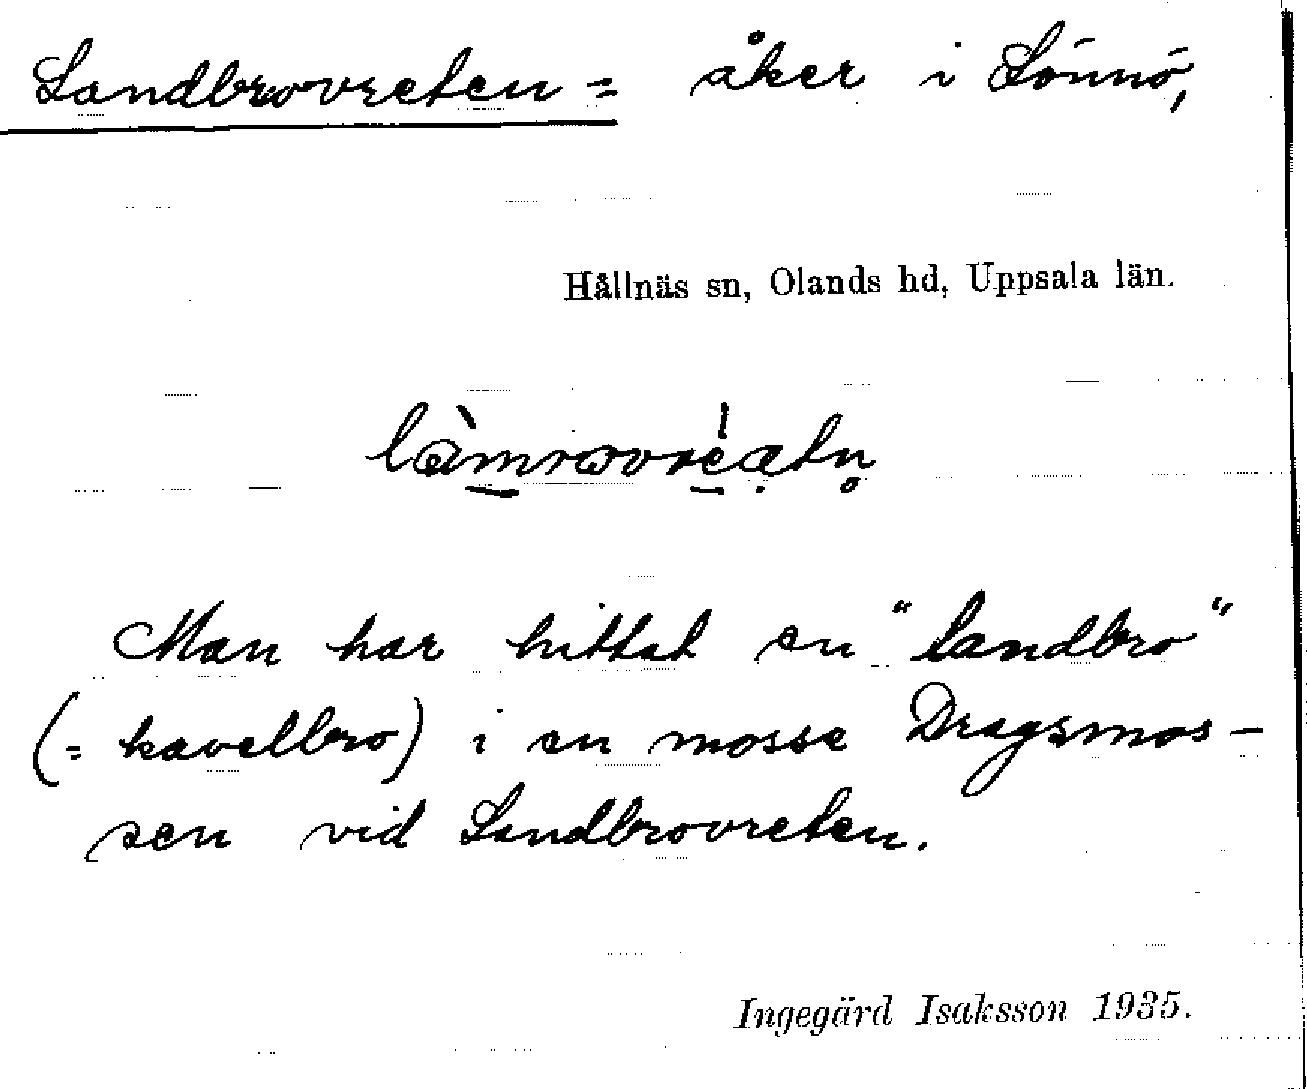 Landbrovreten = åker i Lönnö,
Hållnäs sn, Olands hd, Uppsala län.
Man har hittat en "landbro"
(= kavelbro) i en mosse Dragsmos-
sen vid Landbrovreten.
Ingegärd Isaksson 1935.